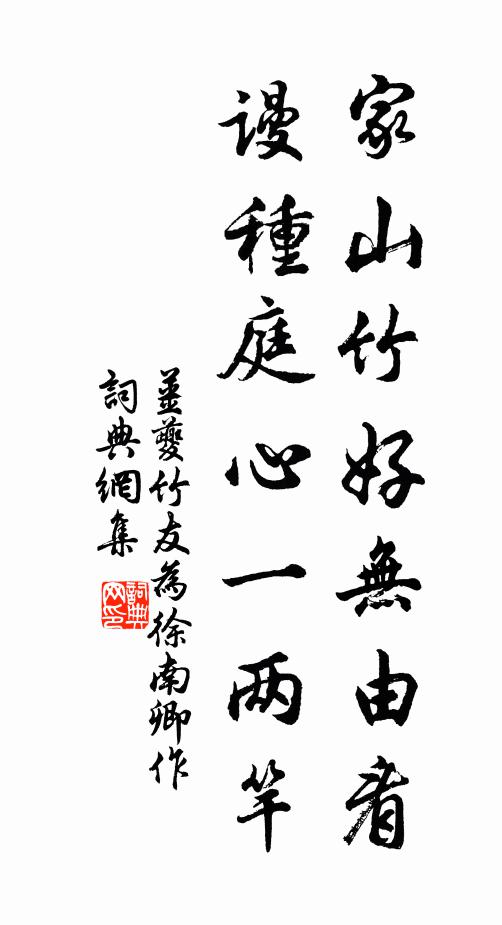 家山竹好無由看
謾種庭心一两竿
姜夔竹友為徐南卿作
詞典網集
詞典
网印